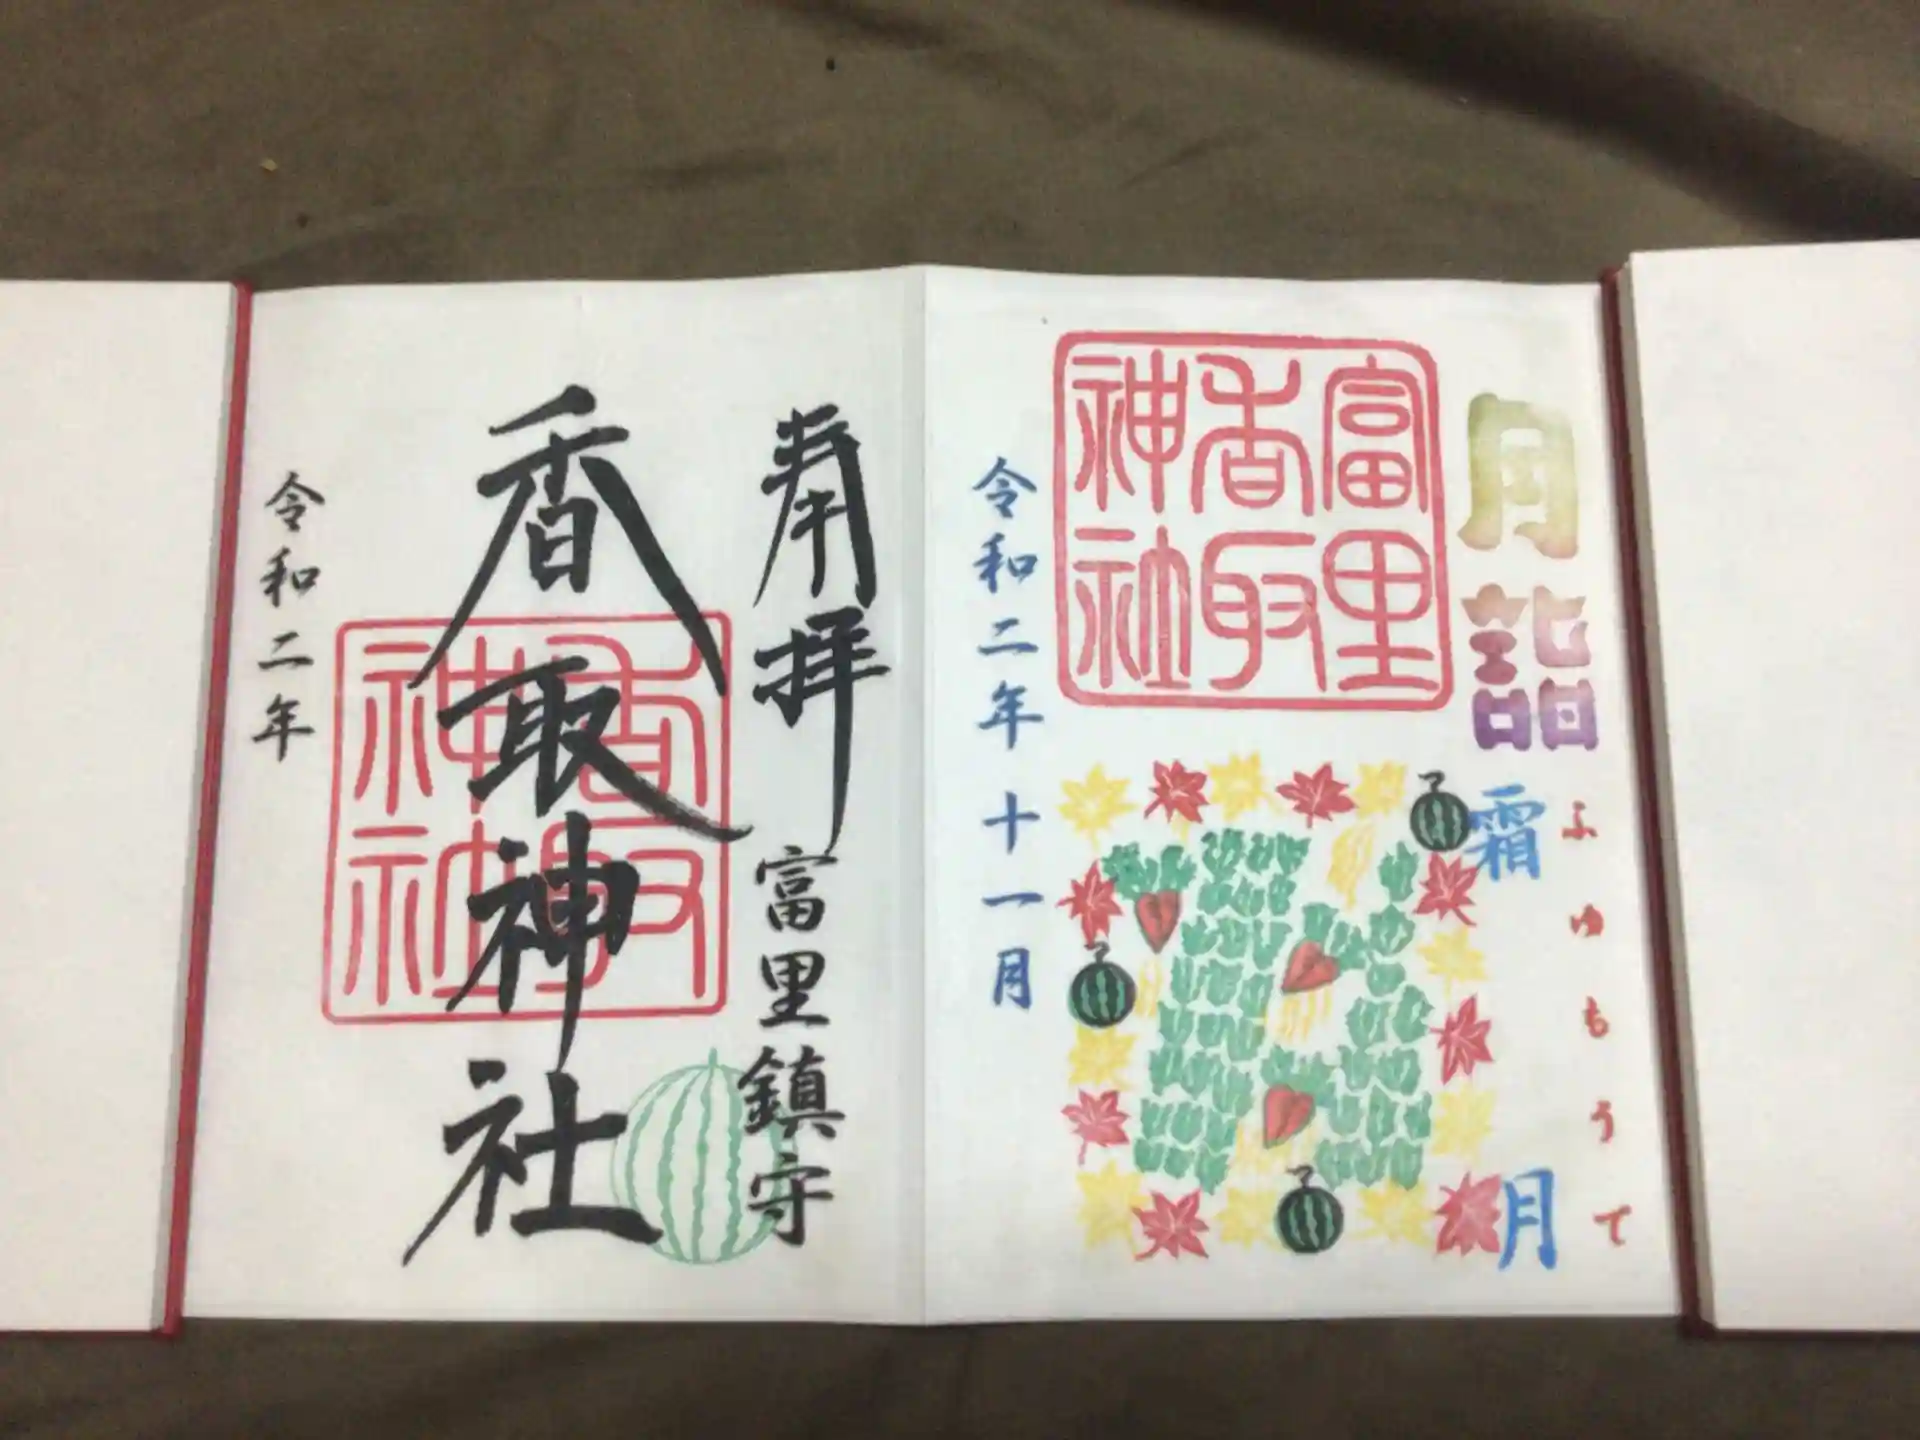 月詣
ふゆもうで
霜月
富里
香取
神社
令和二年十一月
奉拝
富里鎮守
香取神社
香取
神社
令和二年